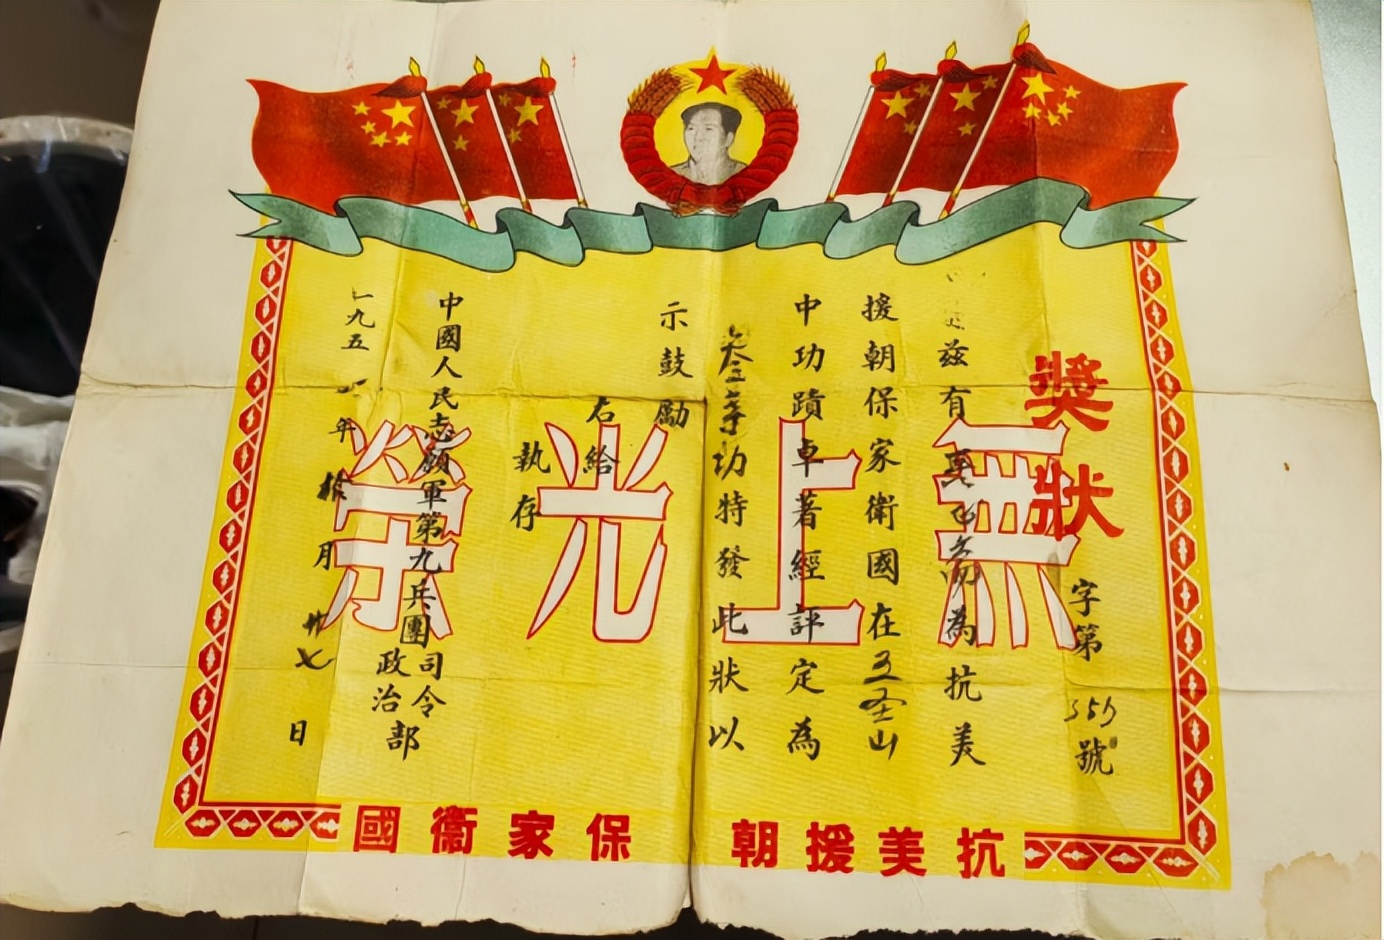 獎狀
字第 號
茲有 為抗美
援朝保家衛國在五圣山
中功蹟卓著經評定為
叁等功特發此狀以
示鼓勵
右給
執存
中國人民志願軍第九兵團司令
政治部
一九五 年 拾 月 廿七日
無上光榮
抗美援朝 保家衞國